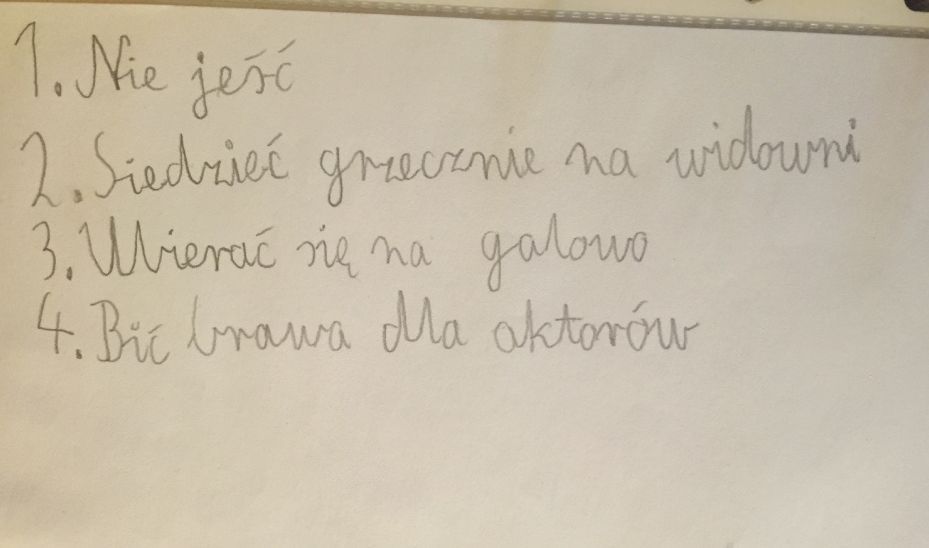 1. Nie jeść
2. Siedzieć grzecznie na widowni
3. Ubierać się na galowo
4. Bić brawa dla aktorów